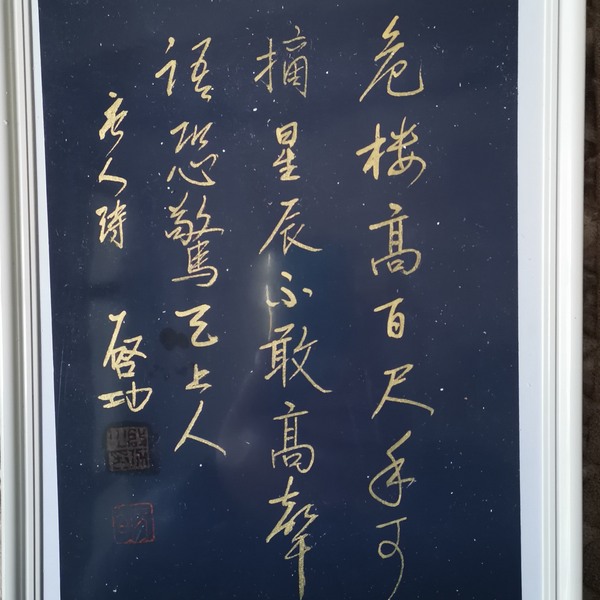 危楼高百尺手可
摘星辰不敢高聲
語恐驚天上人
唐人詩
啓功